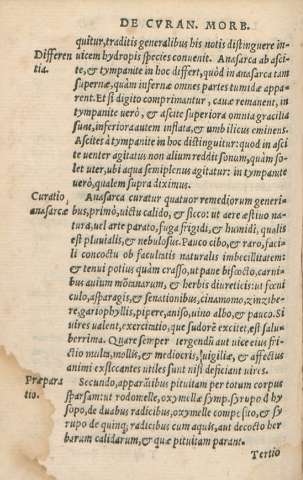 DE CVRAN. MORB.
quitur, traditis generalibus his notis distinguere in-
Differen
tia.
uicem hydropis species conuenit. Anasarca ab asci
te, & tympanite in hoc differt, quòd in anasarca tam
supernæ, quàm infernæ omnes partes tumidæ appa-
rent. Et si digito comprimantur, cauæ remanent, in
tympanite uerò, & ascite superiora omnia gracilia
sunt, inferiora autem inflata, & umbilicus eminens.
Ascites à tympanite in hoc distinguitur: quod in asci
te uenter agitatus non alium reddit sonum, quàm so-
let uter, ubi aqua semiplenus agitatur: in tympanite
uerò, qualem supra diximus.
Curatio
anasarcæ
Anasarca curatur quatuor remediorum generi-
bus, primò, uictu calido, & sicco: ut aere æstiuo na-
tura, uel arte parato, fuga frigidi, & humidi, qualis
est pluuialis, & nebulosus. Pauco cibo, & raro, faci-
li concoctu ob facultatis naturalis imbecillitatem:
& tenui potius quàm crasso, ut pane biscocto, carni-
bus auium montanarum, & herbis diureticis: ut fœni
culo, asparagis, & senationibus, cinamomo, zinzibe-
re, gariophyllis, pipere, aniso, uino albo, & pauco. Si
uires ualent, exercitatio, quæ sudorē excitet, est salu-
berrima. Quare semper tergendi aut uice eius fri-
ctio multa, mollis, & mediocris, uigiliæ, & affectus
animi exsiccantes utiles sunt nisi deficiant uires.
Præpara
tio.
Secundo, apparatibus pituitam per totum corpus
sparsam: ut rodomelle, oxymelle symp. syrupo d hy
sopo, de duabus radicibus, oxymelle composito, & sy
rupo de quinq; radicibus cum aquis, aut decocto her
barum calidarum, & quæ pituitam parant.
Tertio